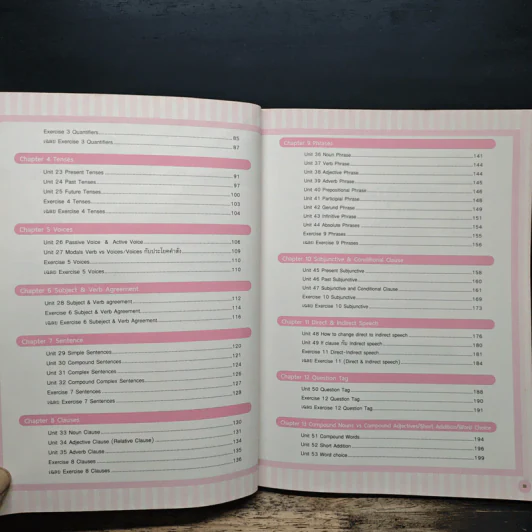 Exercise 3 Quantifiers 85
เฉลย Exercise 3 Quantifiers 87
Chapter 4 Tenses
Unit 23 Present Tenses 91
Unit 24 Past Tenses 97
Unit 25 Future Tenses 100
Exercise 4 Tenses 103
เฉลย Exercise 4 Tenses 104
Chapter 5 Voices
Unit 26 Passive Voice & Active Voice 106
Unit 27 Modals Verb vs Voices/Voices กับประโยคคำสั่ง 109
Exercise 5 Voices 110
เฉลย Exercise 5 Voices 110
Chapter 6 Subject & Verb Agreement
Unit 28 Subject & Verb agreement 112
Exercise 6 Subject & Verb Agreement 114
เฉลย Exercise 6 Subject & Verb Agreement 116
Chapter 7 Sentence
Unit 29 Simple Sentences 120
Unit 30 Compound Sentences 121
Unit 31 Complex Sentences 124
Unit 32 Compound Complex Sentences 126
Exercise 7 Sentences 127
เฉลย Exercise 7 Sentences 128
Chapter 8 Clauses 130
Unit 33 Noun Clause 132
Unit 34 Adjective Clause (Relative Clause) 134
Unit 35 Adverb Clause 135
Exercise 8 Clauses 136
เฉลย Exercise 8 Clauses
Chapter 9 Phrases
Unit 36 Noun Phrase 141
Unit 37 Verb Phrase 144
Unit 38 Adjective Phrase 144
Unit 39 Adverb Phrase 145
Unit 40 Prepositional Phrase 146
Unit 41 Participal Phrase 148
Unit 42 Gerund Phrase 149
Unit 43 Infinitive Phrase 151
Unit 44 Absolute Phrases 154
Exercise 9 Phrases 155
เฉลย Exercise 9 Phrases 156
Chapter 10 Subjunctive & Conditional Clause
Unit 45 Present Subjunctive 158
Unit 46 Past Subjunctive 160
Unit 47 Subjunctive and Conditional Clause 161
Exercise 10 Subjunctive 169
เฉลย Exercise 10 Subjunctive 173
Chapter 11 Direct & Indirect Speech
Unit 48 How to change direct to indirect speech 176
Unit 49 If clause กับ Indirect speech 180
Exercise 11 Direct-Indirect speech 181
เฉลย Exercise 11 (Direct & Indirect speech) 184
Chapter 12 Question Tag
Unit 50 Question Tag 188
Exercise 12 Question Tag 190
เฉลย Exercise 12 Question Tag 191
Chapter 13 Compound Nouns vs Compound Adjectives/Short Addition/Word Choice
Unit 51 Compound Words 194
Unit 52 Short Addition 196
Unit 53 Word choice 199